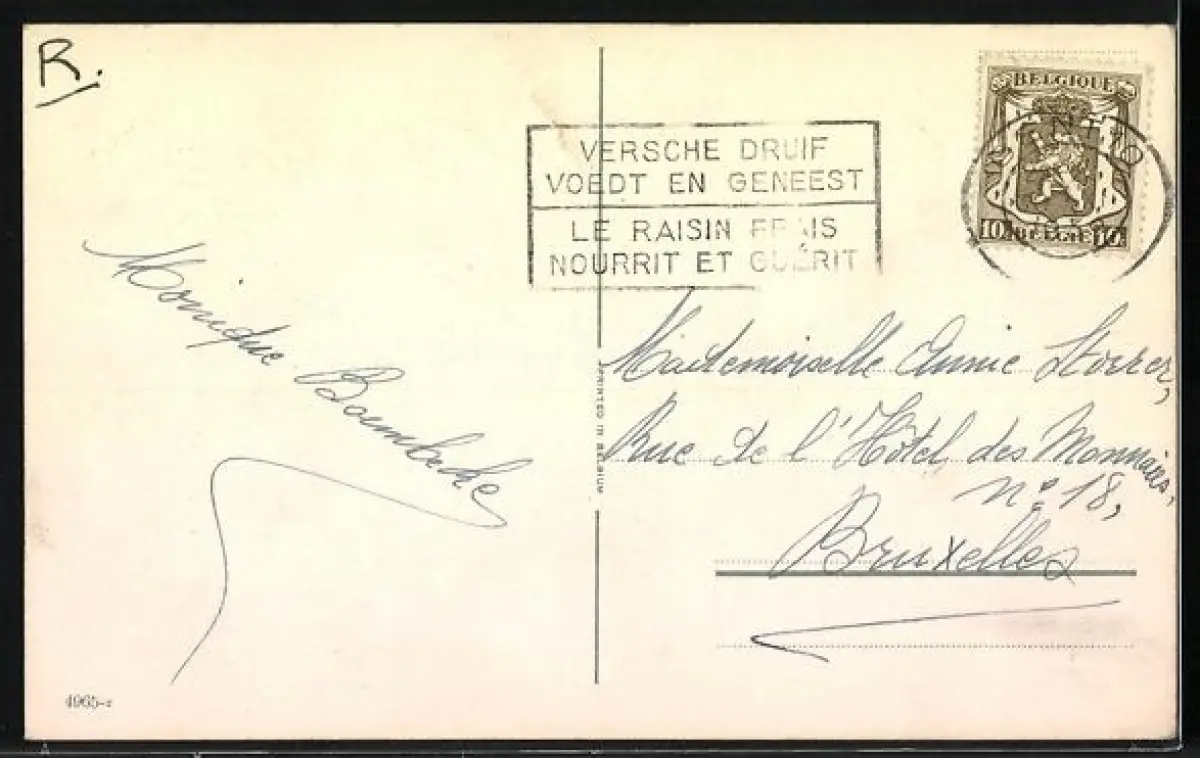 R.
VERSCHE DRUIF
VOEDT EN GENEEST
LE RAISIN FRAIS
NOURRIT ET GUÉRIT
BELGIQUE
10c 10c
BELGIË
Monique
Mademoiselle Annie Storrer,
Rue de l'Hôtel des Monnaies,
n° 18,
Bruxelles
PRINTED IN BELGIUM